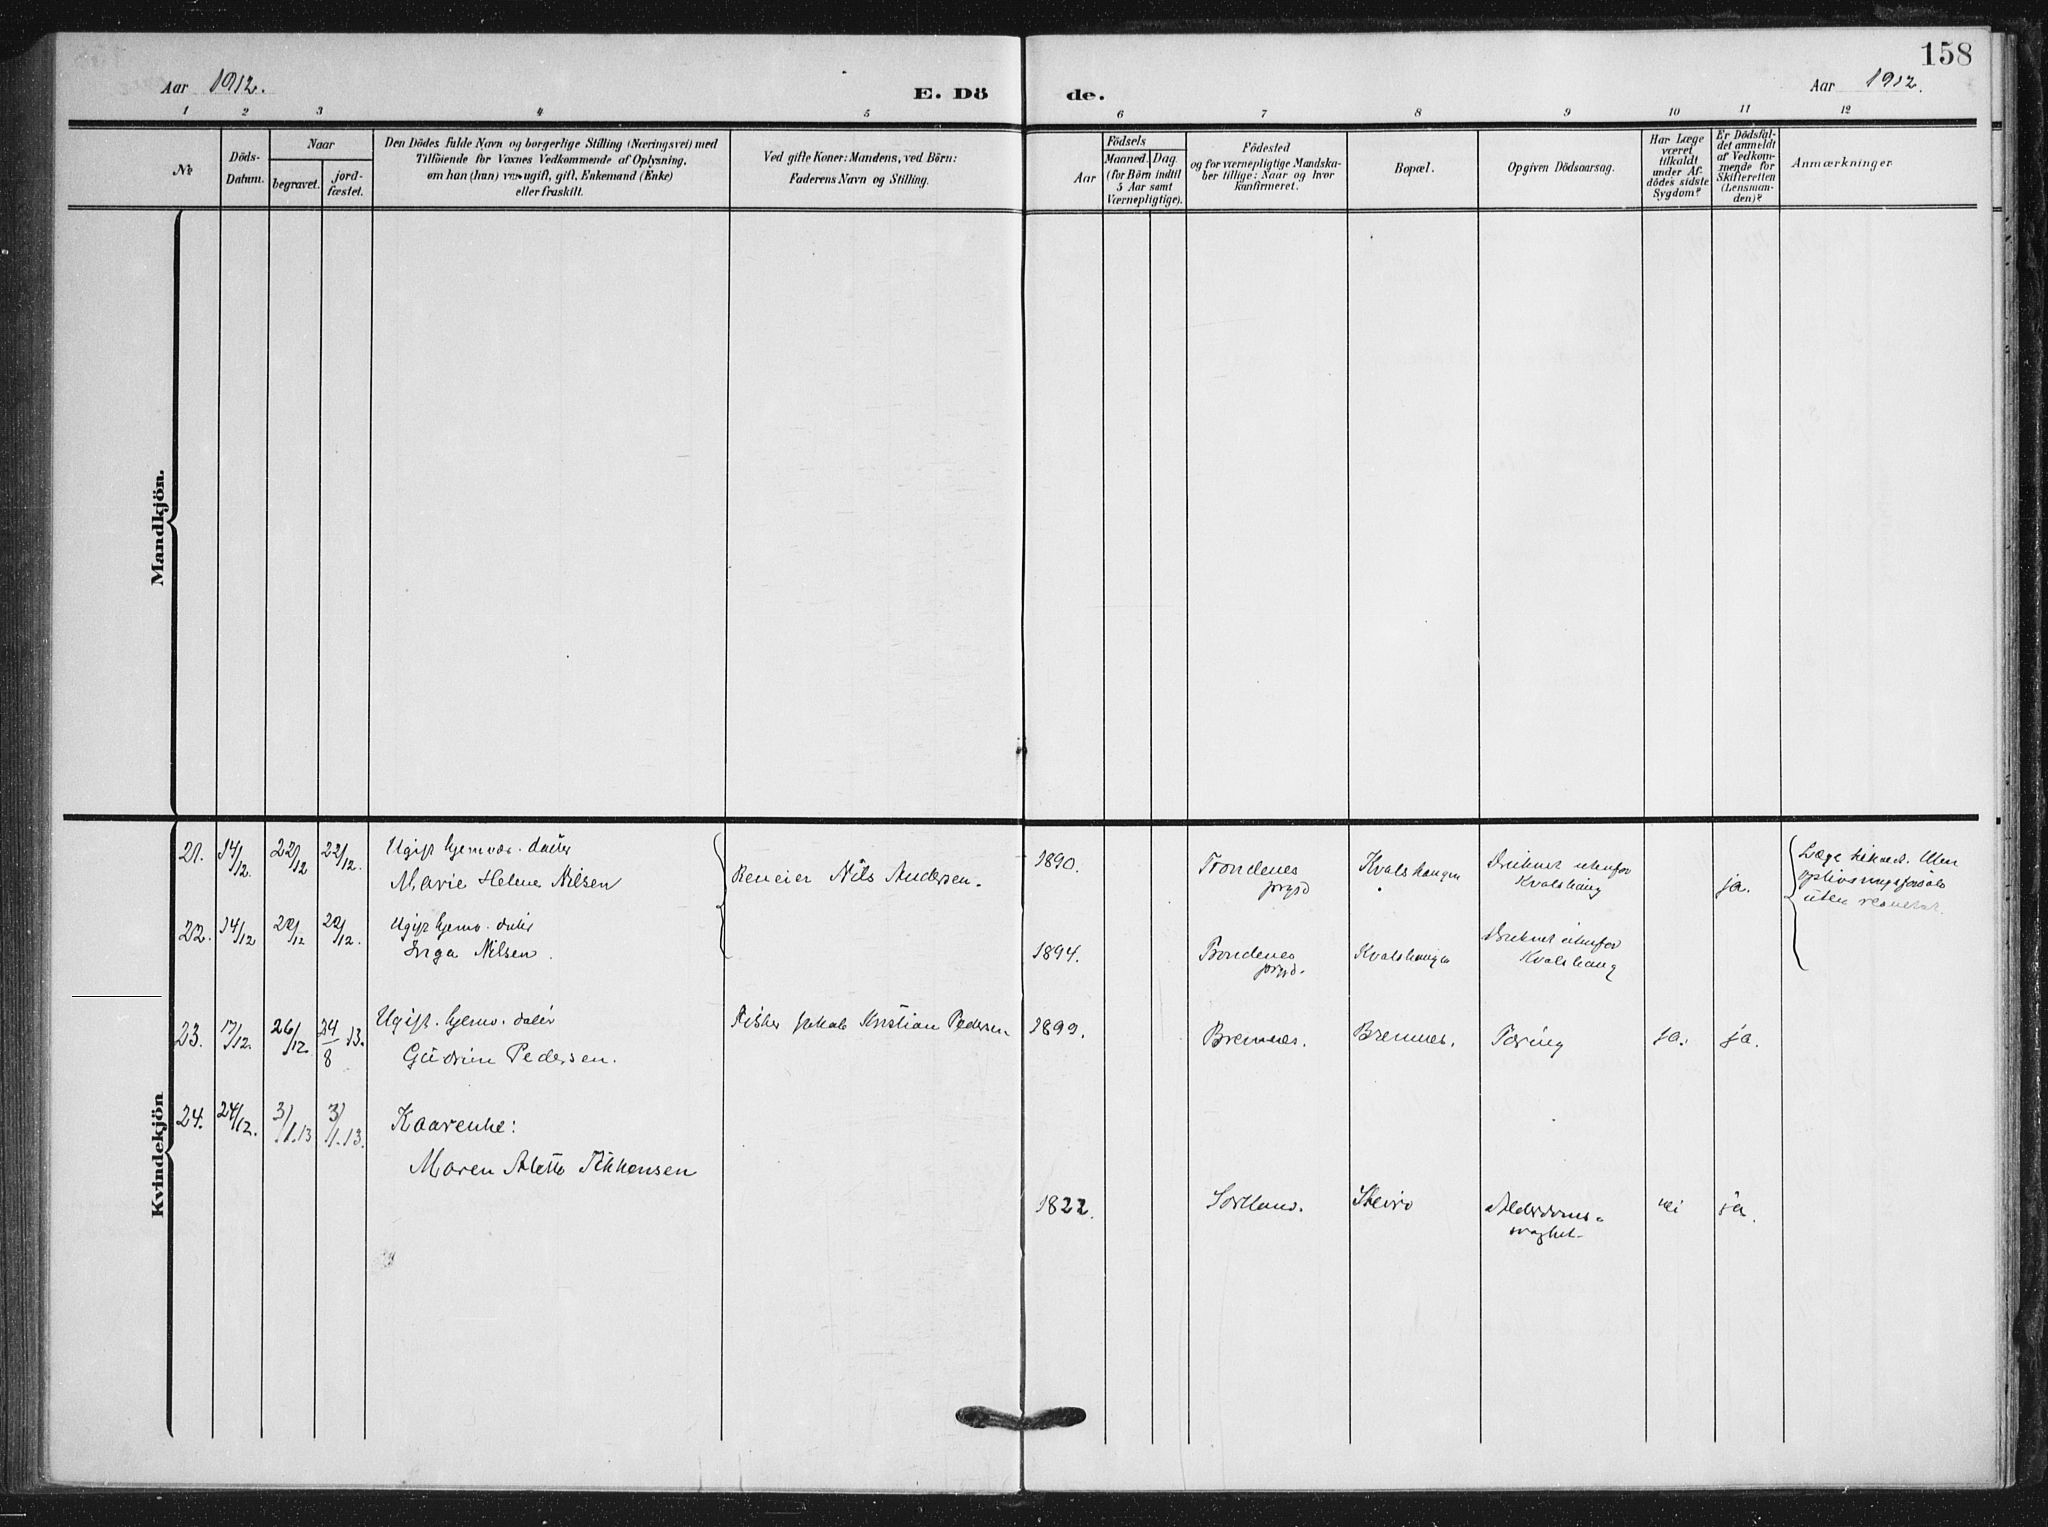 158
Aar 1912.
E. Dö
de.
Aar 1912.
1 2 3 4 5 6 7 8 9 10 11 12
No
Döds-
Datum.
Naar
begravet.
jord-
fæstet.
Den Dödes fulde Navn og borgerlige Stilling (Næringsvei) med
Tilföiende for Voxnes Vedkommende af Oplysning,
om han (hun) var ugift, gift, Enkemand (Enke)
eller fraskilt.
Ved gifte Koner: Mandens, ved Börn:
Faderens Navn og Stilling.
Födsels
Aar
Maaned. Dag.
(for Börn indtil
5 Aar samt
Værnepligtige).
Födested
og for værnepligtige Mandska-
ber tillige: Naar og hvor
konfirmeret.
Bopæl.
Opgiven Dödsaarsag.
Har Læge
været
tilkaldt
under Af-
dödes sidste
Sygdom?
Er Dödsfal-
det anmeldt
af Vedkom-
mende for
Skifteretten
(Lensman-
den)?
Anmærkninger.
Mandkjön.
Kvindekjön
21. 14/12. 22/12 22/12. Ugift hjemvær. datter
Marie Helene Nilsen
Reneier Nils Andersen.
1890. Trondenes
prgjd
Kvalshaugen
Druknet utenfor
Kvalshaug
ja.
Læge tilkaldt. Uten
oplivningsforsøk
uten resultat.
22. 14/12 22/12 22/12. Ugift hjemv. datter
Inga Nilsen.
1894. Trondenes
prgjd.
Kvalshaugen
Druknet utenfor
Kvalshaug
23. 17/12. 26/12. 24/8 13. Ugift. hjemv. datter
Gudrun Pedersen.
Fisker Jakob Kristian Pedersen
1899. Bremnes. Bremnes. Tæring ja. ja.
24. 24/12. 3/1.13 3/1.13. Kaarenke:
Maren Alette Tøkkensen
1822. Sortland. Steiro Alderdoms-
svaghet. nei ja.